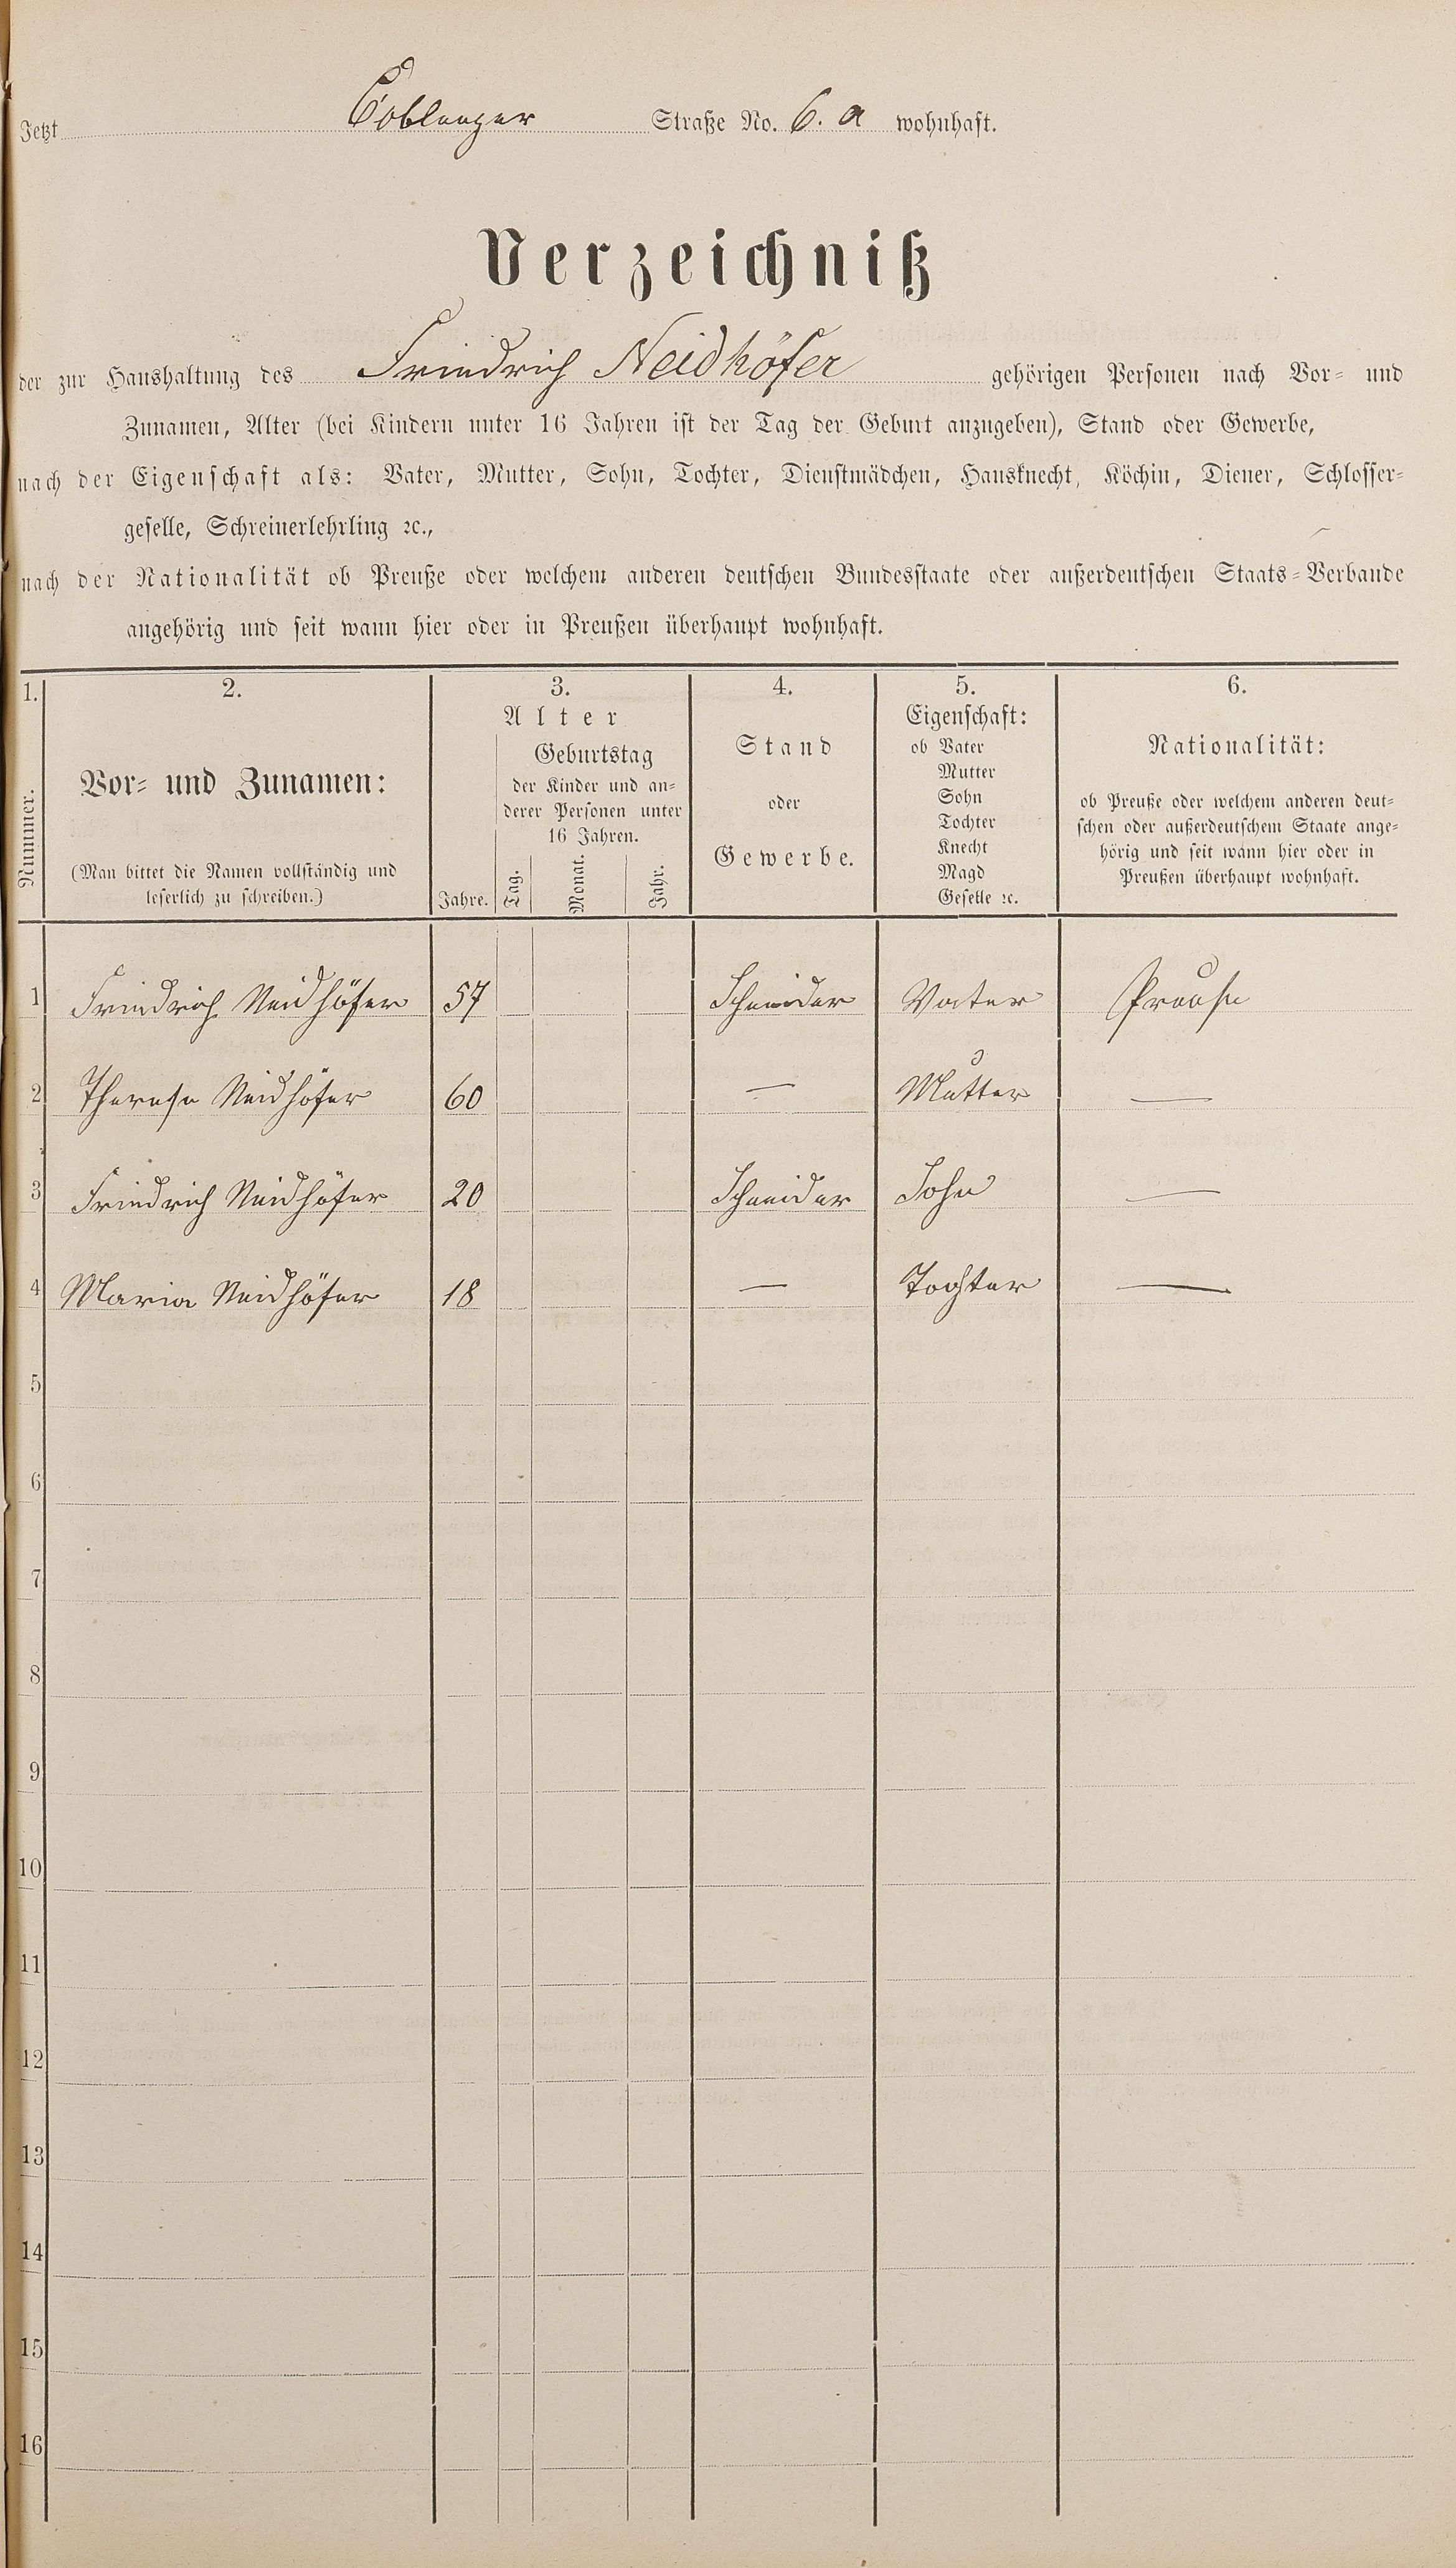 Jetzt Coblenzer Straße No. 6. a wohnhaft.
Verzeichniß
der zur Haushaltung des Friedrich Neidhöfer gehörigen Personen nach Vor= und
Zunamen, Alter (bei Kindern unter 16 Jahren ist der Tag der Geburt anzugeben), Stand oder Gewerbe,
nach der Eigenschaft als: Vater, Mutter, Sohn, Tochter, Dienstmädchen, Hausknecht, Köchin, Diener, Schlosser=
geselle, Schreinerlehrling ꝛc.,
nach der Nationalität ob Preuße oder welchem anderen deutschen Bundesstaate oder außerdeutschen Staats=Verbande
angehörig und seit wann hier oder in Preußen überhaupt wohnhaft.
1. 2. 3. 4. 5. 6.
Nummer.
Vor= und Zunamen:
(Man bittet die Namen vollständig und
leserlich zu schreiben.)
Alter
Jahre.
Geburtstag
der Kinder und an=
derer Personen unter
16 Jahren.
Tag. Monat. Jahr.
Stand
oder
Gewerbe.
Eigenschaft:
ob Vater
Mutter
Sohn
Tochter
Knecht
Magd
Geselle ꝛc.
Nationalität:
ob Preuße oder welchem anderen deut=
schen oder außerdeutschem Staate ange=
hörig und seit wann hier oder in
Preußen überhaupt wohnhaft.
1 Friedrich Neidhöfer 57 Schneider Vater Preuße
2 Therese Neidhöfer 60 — Mutter —
3 Friedrich Neidhöfer 20 Schneider Sohn —
4 Maria Neidhöfer 18 — Tochter —
5
6
7
8
9
10
11
12
13
14
15
16